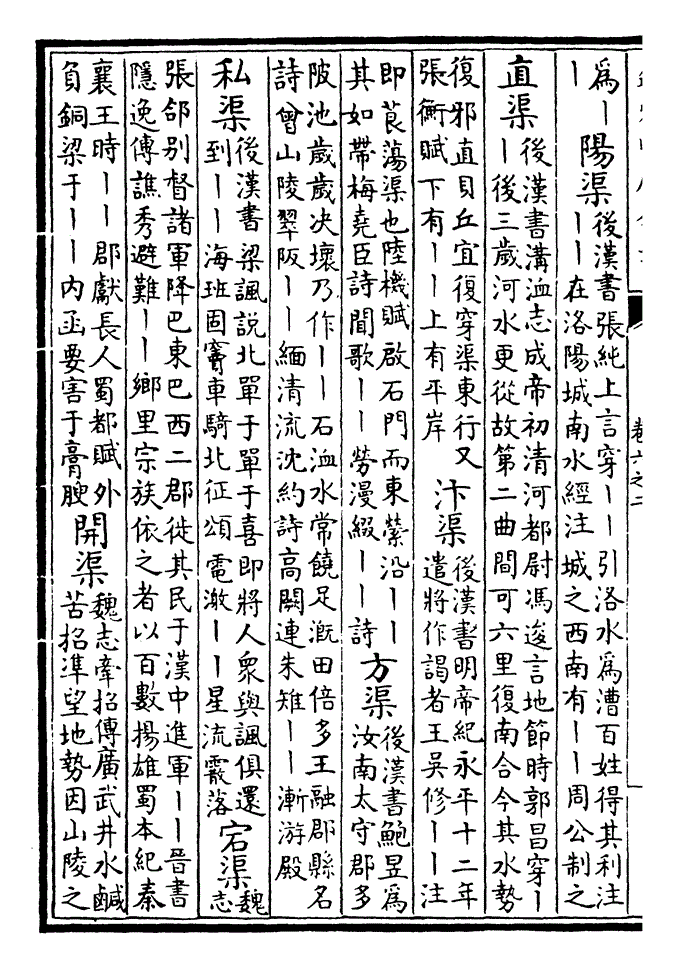 爲丨
丨
陽渠
後漢書張純上言穿丨丨引洛水爲漕百姓得其利注
丨丨在洛陽城南水經注城之西南有丨丨周公制之
直渠
後漢書溝洫志成帝初清河都尉馮逡言地節時郭昌穿丨
丨後三歲河水更從故第二曲間可六里復南合今其水勢
復邪直貝丘宜復穿渠東行又
張衡賦下有丨丨上有平岸
汴渠
後漢書明帝紀永平十二年
遣將作謁者王吳修丨丨注
即莨蕩渠也陸機賦啟石門而東縈沿丨丨
其如帶梅堯臣詩聞歌丨丨勞漫綴丨丨詩
方渠
後漢書鮑昱爲
汝南太守郡多
陂池歲歲决壞乃作丨丨石洫水常饒足漑田倍多王融郡縣名
詩曾山陵翠阪丨丨緬清流沈約詩高闕連朱雉丨丨漸游殿
私渠
後漢書梁諷說北單于單于喜即將人衆與諷俱還
到丨丨海班固竇車騎北征頌電激丨丨星流霰落
宕渠
魏
志
張郃别督諸軍降巴東巴西二郡徙其民于漢中進軍丨丨晉書
隱逸傳譙秀避難丨丨鄉里宗族依之者以百數揚雄蜀本紀秦
襄王時丨丨郡獻長人蜀都賦外
負銅梁于丨丨内函要害于膏腴
開渠
魏志牽招傳廣武井水鹹
苦招凖望地勢因山陵之
卷六之二